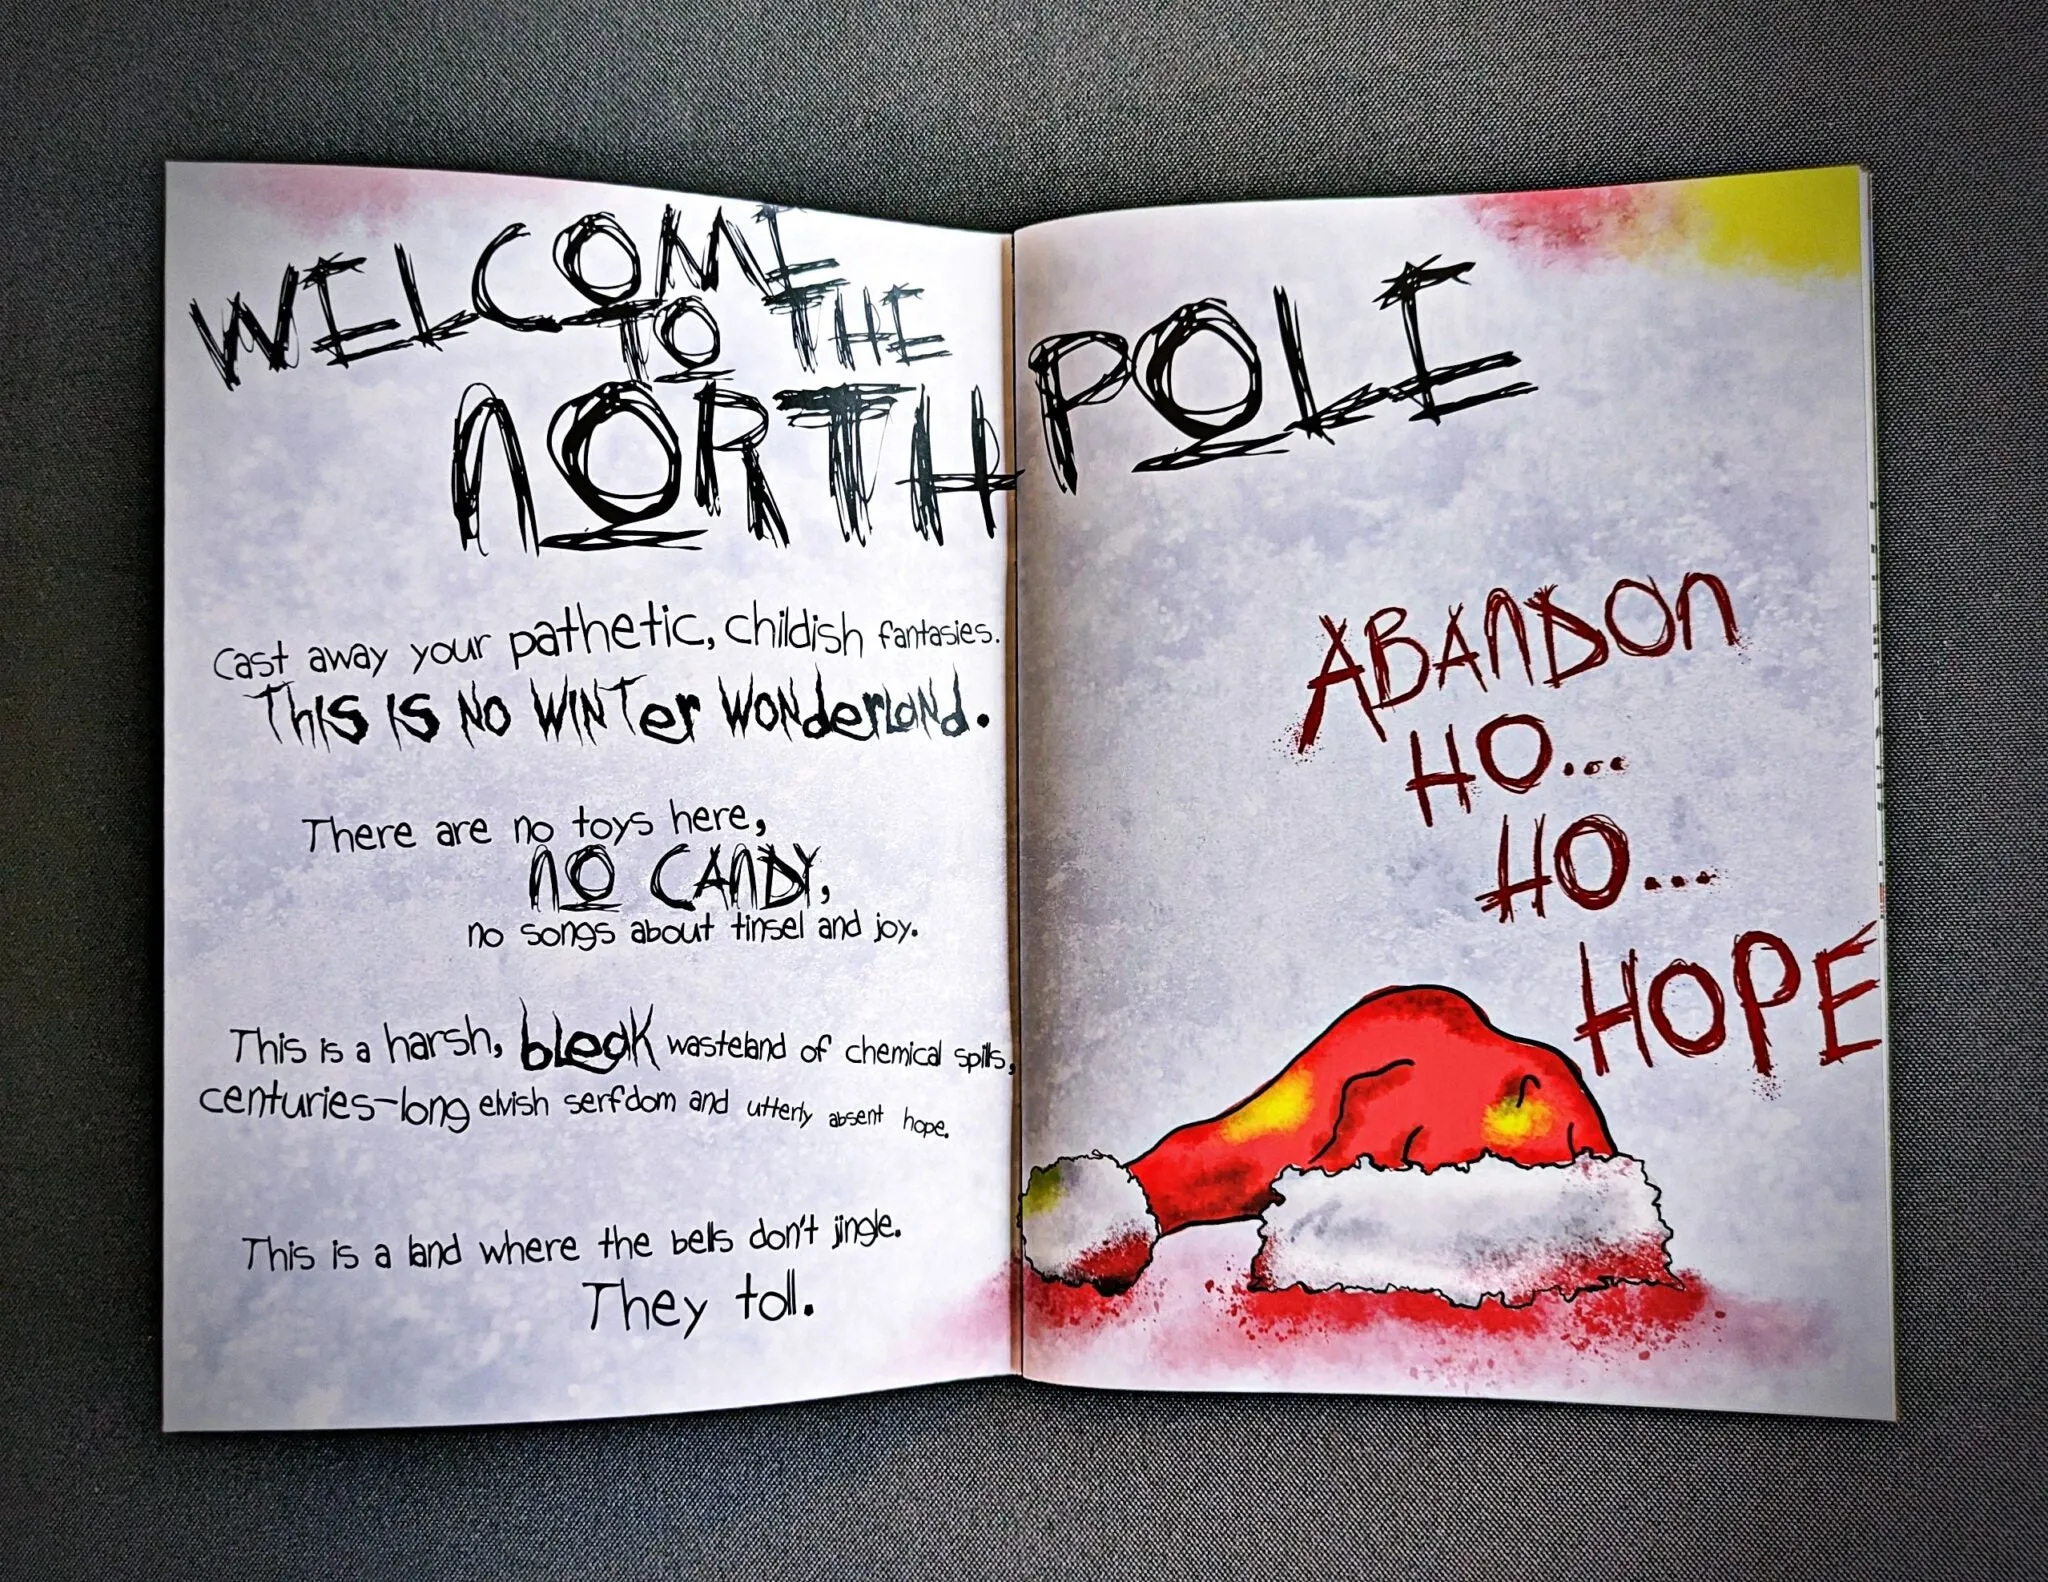 WELCOME
TO THE
NORTH POLE
Cast away your pathetic, childish fantasies.
This is no winter wonderland.
There are no toys here,
NO CANDY,
no songs about tinsel and joy.
This is a harsh, bleak wasteland of chemical spills,
centuries-long elvish serfdom and utterly absent hope.
This is a land where the bells don't jingle.
They toll.
ABANDON
HO...
HO...
HOPE